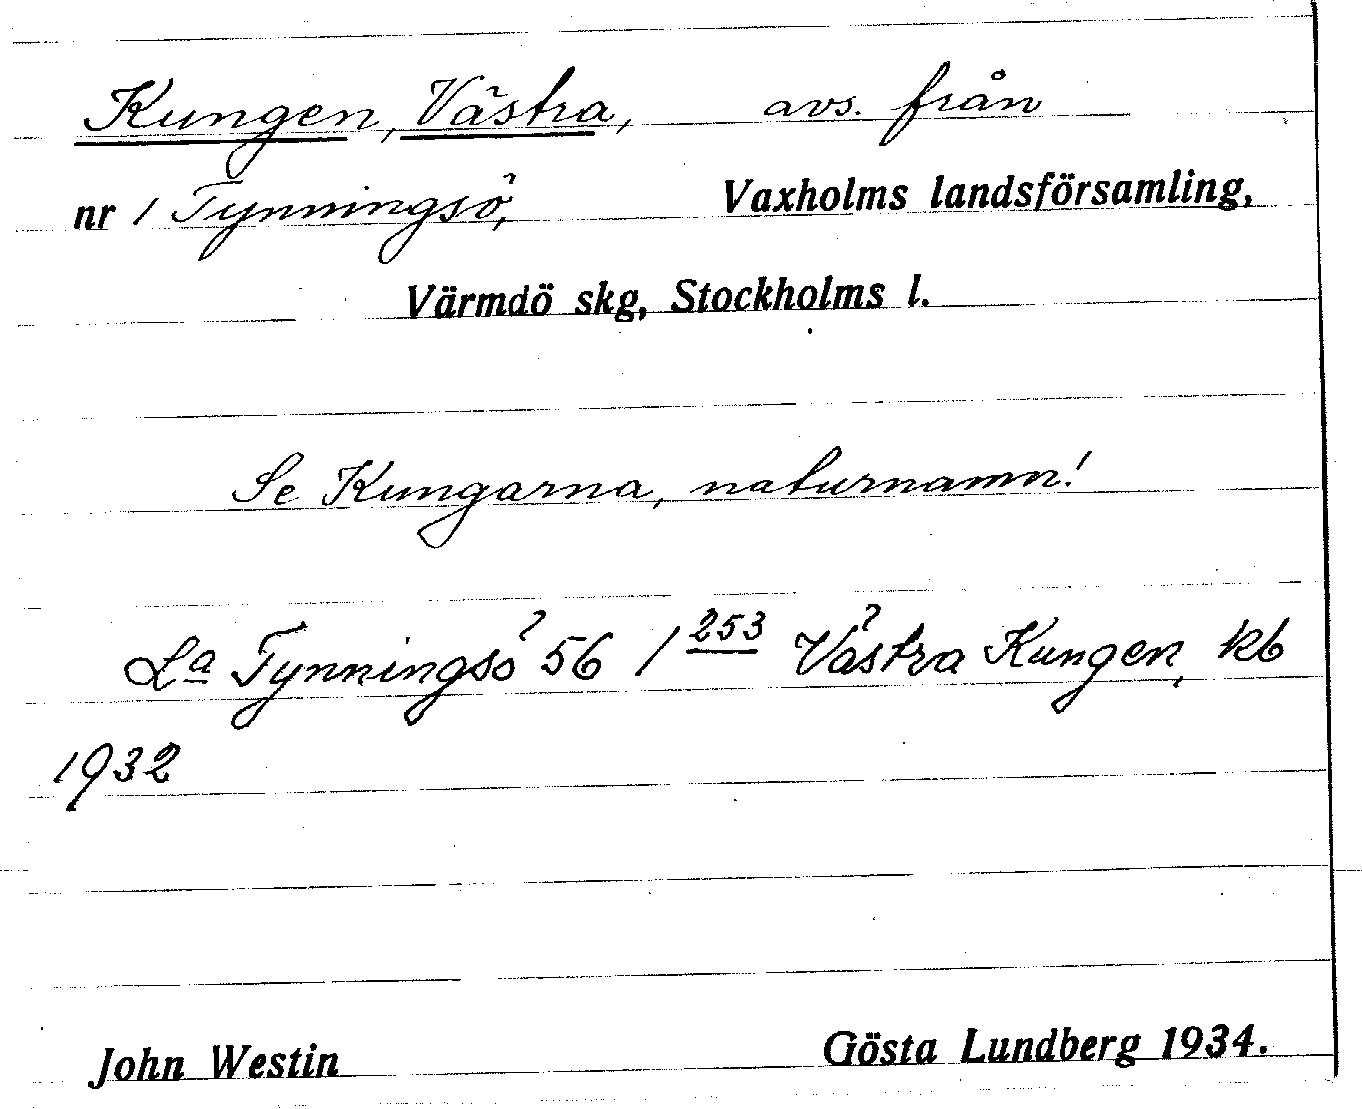 Kungen, Västra, avs. från
nr 1 Tynningsö, Vaxholms landsförsamling,
Värmdö skg, Stockholms l.
Se Kungarna, naturnamn!
La Tynningsö 56 / 253 Västra Kungen, kb
1932
John Westin Gösta Lundberg 1934.